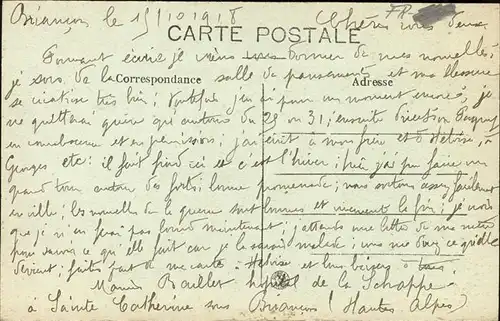 Briançon le 15/10 1918 Chères vous deux
CARTE POSTALE
Pouvant écrire je viens vous donner de mes nouvelles;
je sors de la salle de pansements et ma blessure
Correspondance Adresse
se cicatrise très bien; toutefois j'en ai pour un moment encore; je
ne quitterai guère qu'autour du 29 ou 31; ensuite direction
en convalescence et en permission; j'ai écrit à mon frère et à
Georges etc: il fait froid ici et c'est l'hiver; hier j'ai pu faire un
grand tour autour des forts; bonne promenade; nous sortons assez facilement
en ville; les nouvelles de la guerre sont bonnes et la fin; je crois
que je n'en ferai pas long maintenant; j'attends une lettre de ma
pour savoir ce qu'elle fait car je la savais malade; vous me direz ce qu'elle
devient; faites part de ma carte et bons baisers à tous
Maurice Baillet hôpital de la Schappe
à Sainte Catherine sous Briançon (Hautes Alpes)